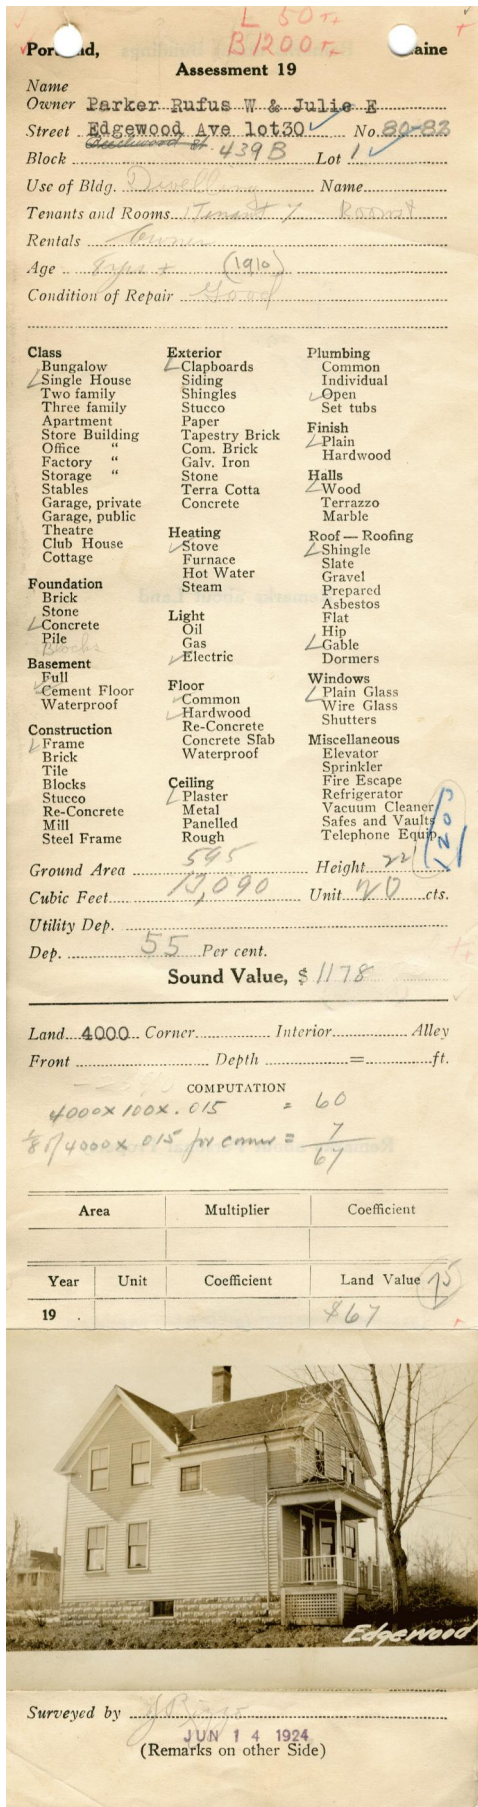 L 50
B1200
Portland, Maine
Assessment 19
Name
Owner Parker Rufus W & Julie E
Street Edgewood Ave lot30 No. 80-82
Beechwood St
Block 439B Lot 1
Use of Bldg. Dwelling Name
Tenants and Rooms 1 Tenant 7 Rooms
Rentals Owner
Age 8 yrs ± (1910)
Condition of Repair Good
Class
Bungalow
Single House
Two family
Three family
Apartment
Store Building
Office "
Factory "
Storage "
Stables
Garage, private
Garage, public
Theatre
Club House
Cottage
Foundation
Brick
Stone
Concrete
Pile
Blocks
Basement
Full
Cement Floor
Waterproof
Construction
Frame
Brick
Tile
Blocks
Stucco
Re-Concrete
Mill
Steel Frame
Exterior
Clapboards
Siding
Shingles
Stucco
Paper
Tapestry Brick
Com. Brick
Galv. Iron
Stone
Terra Cotta
Concrete
Heating
Stove
Furnace
Hot Water
Steam
Light
Oil
Gas
Electric
Floor
Common
Hardwood
Re-Concrete
Concrete Slab
Waterproof
Ceiling
Plaster
Metal
Panelled
Rough
Plumbing
Common
Individual
Open
Set tubs
Finish
Plain
Hardwood
Halls
Wood
Terrazzo
Marble
Roof — Roofing
Shingle
Slate
Gravel
Prepared
Asbestos
Flat
Hip
Gable
Dormers
Windows
Plain Glass
Wire Glass
Shutters
Miscellaneous
Elevator
Sprinkler
Fire Escape
Refrigerator
Vacuum Cleaner
Safes and Vaults
Telephone Equip.
Ground Area 595 Height 22
Cubic Feet 13,090 Unit 20 cts.
Utility Dep.
Dep. 55 Per cent.
Sound Value, $ 1178
Land 4000 Corner Interior Alley
Front Depth = ft.
COMPUTATION
4000 x 100 x .015 = 60
1/8 of 4000 x .015 for corner = 7
67
Area Multiplier Coefficient
Year Unit Coefficient Land Value 75
19 $67
Edgewood
Surveyed by
JUN 14 1924
(Remarks on other Side)